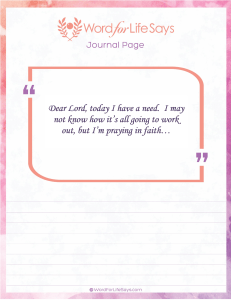 Word for Life Says
Journal Page
“
Dear Lord, today I have a need. I may
not know how it’s all going to work
out, but I’m praying in faith…
”
WordForLifeSays.com